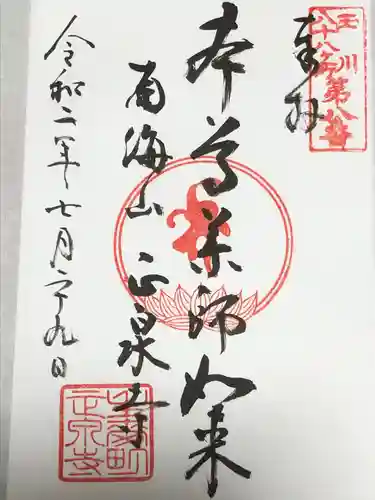 玉川
八十八ヶ所第八番
奉拝
本尊薬師如来
南海山 正泉寺
令和二年七月二十九日
正泉寺